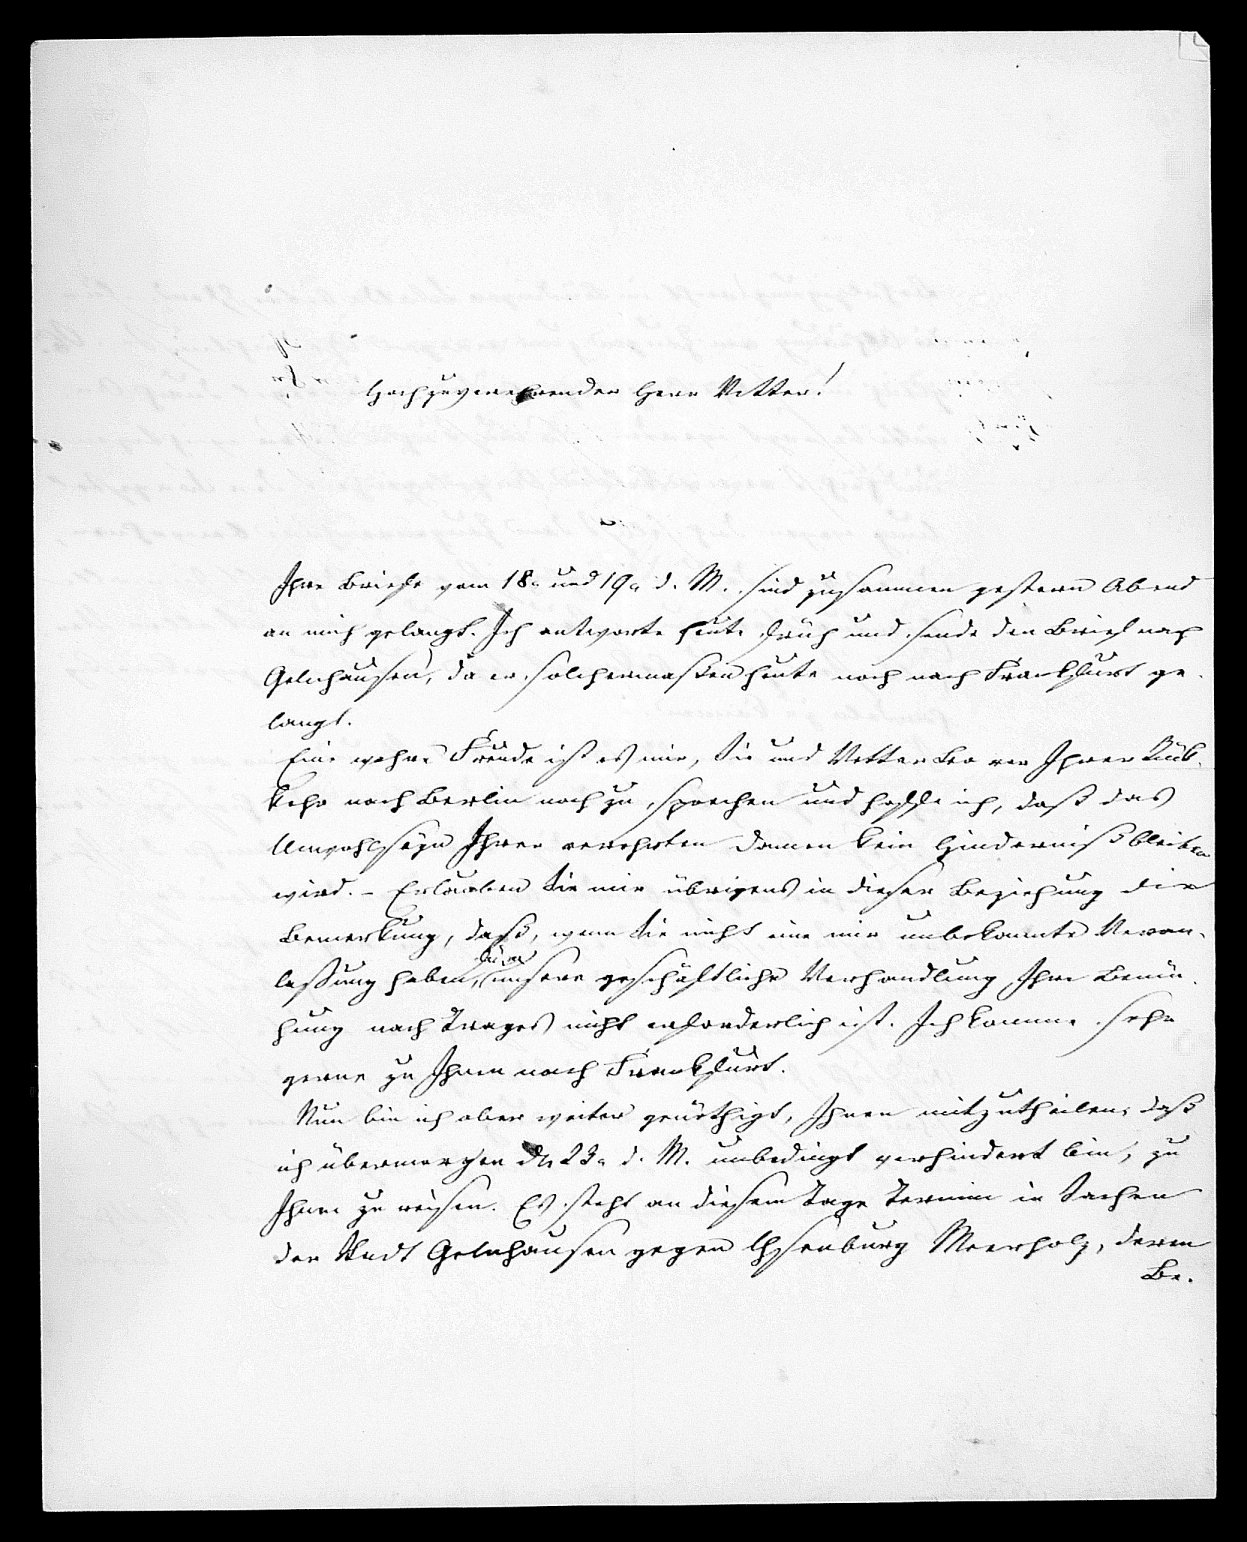 Hochzuverehrender Herr Vetter!
Ihre Briefe vom 18n und 19n d. M. sind zusammen gestern Abend
an mich gelangt. Ich antworte heute früh und sende den Brief nach
Gelnhausen, da er solchermaßen heute noch nach Frankfurt ge-
langt.
Eine wahre Freude ist es mir, Sie und Vetter Leo vor Ihrer Rük-
kehr nach Berlin noch zu sprechen und hoffe ich, daß das
Unwohlseyn Ihrer verehrten Damen kein Hinderniß bleiben
wird. – Erlauben Sie mir übrigens in dieser Beziehung die
Bemerkung, daß, wenn Sie nicht eine mir unbekannte Veran-
laßung haben, für unsere geschäftliche Verhandlung Ihre Bemü-
hung nach Trages nicht erforderlich ist. Ich komme sehr
gerne zu Ihnen nach Frankfurt.
Nun bin ich aber weiter genöthigt, Ihnen mitzutheilen, daß
ich übermorgen dn 23n d. M. unbedingt verhindert bin, zu
Ihnen zu reisen. Es steht an diesem Tage Termin in Sachen
der Stadt Gelnhausen gegen Ysenburg Meerholz, deren
Be-